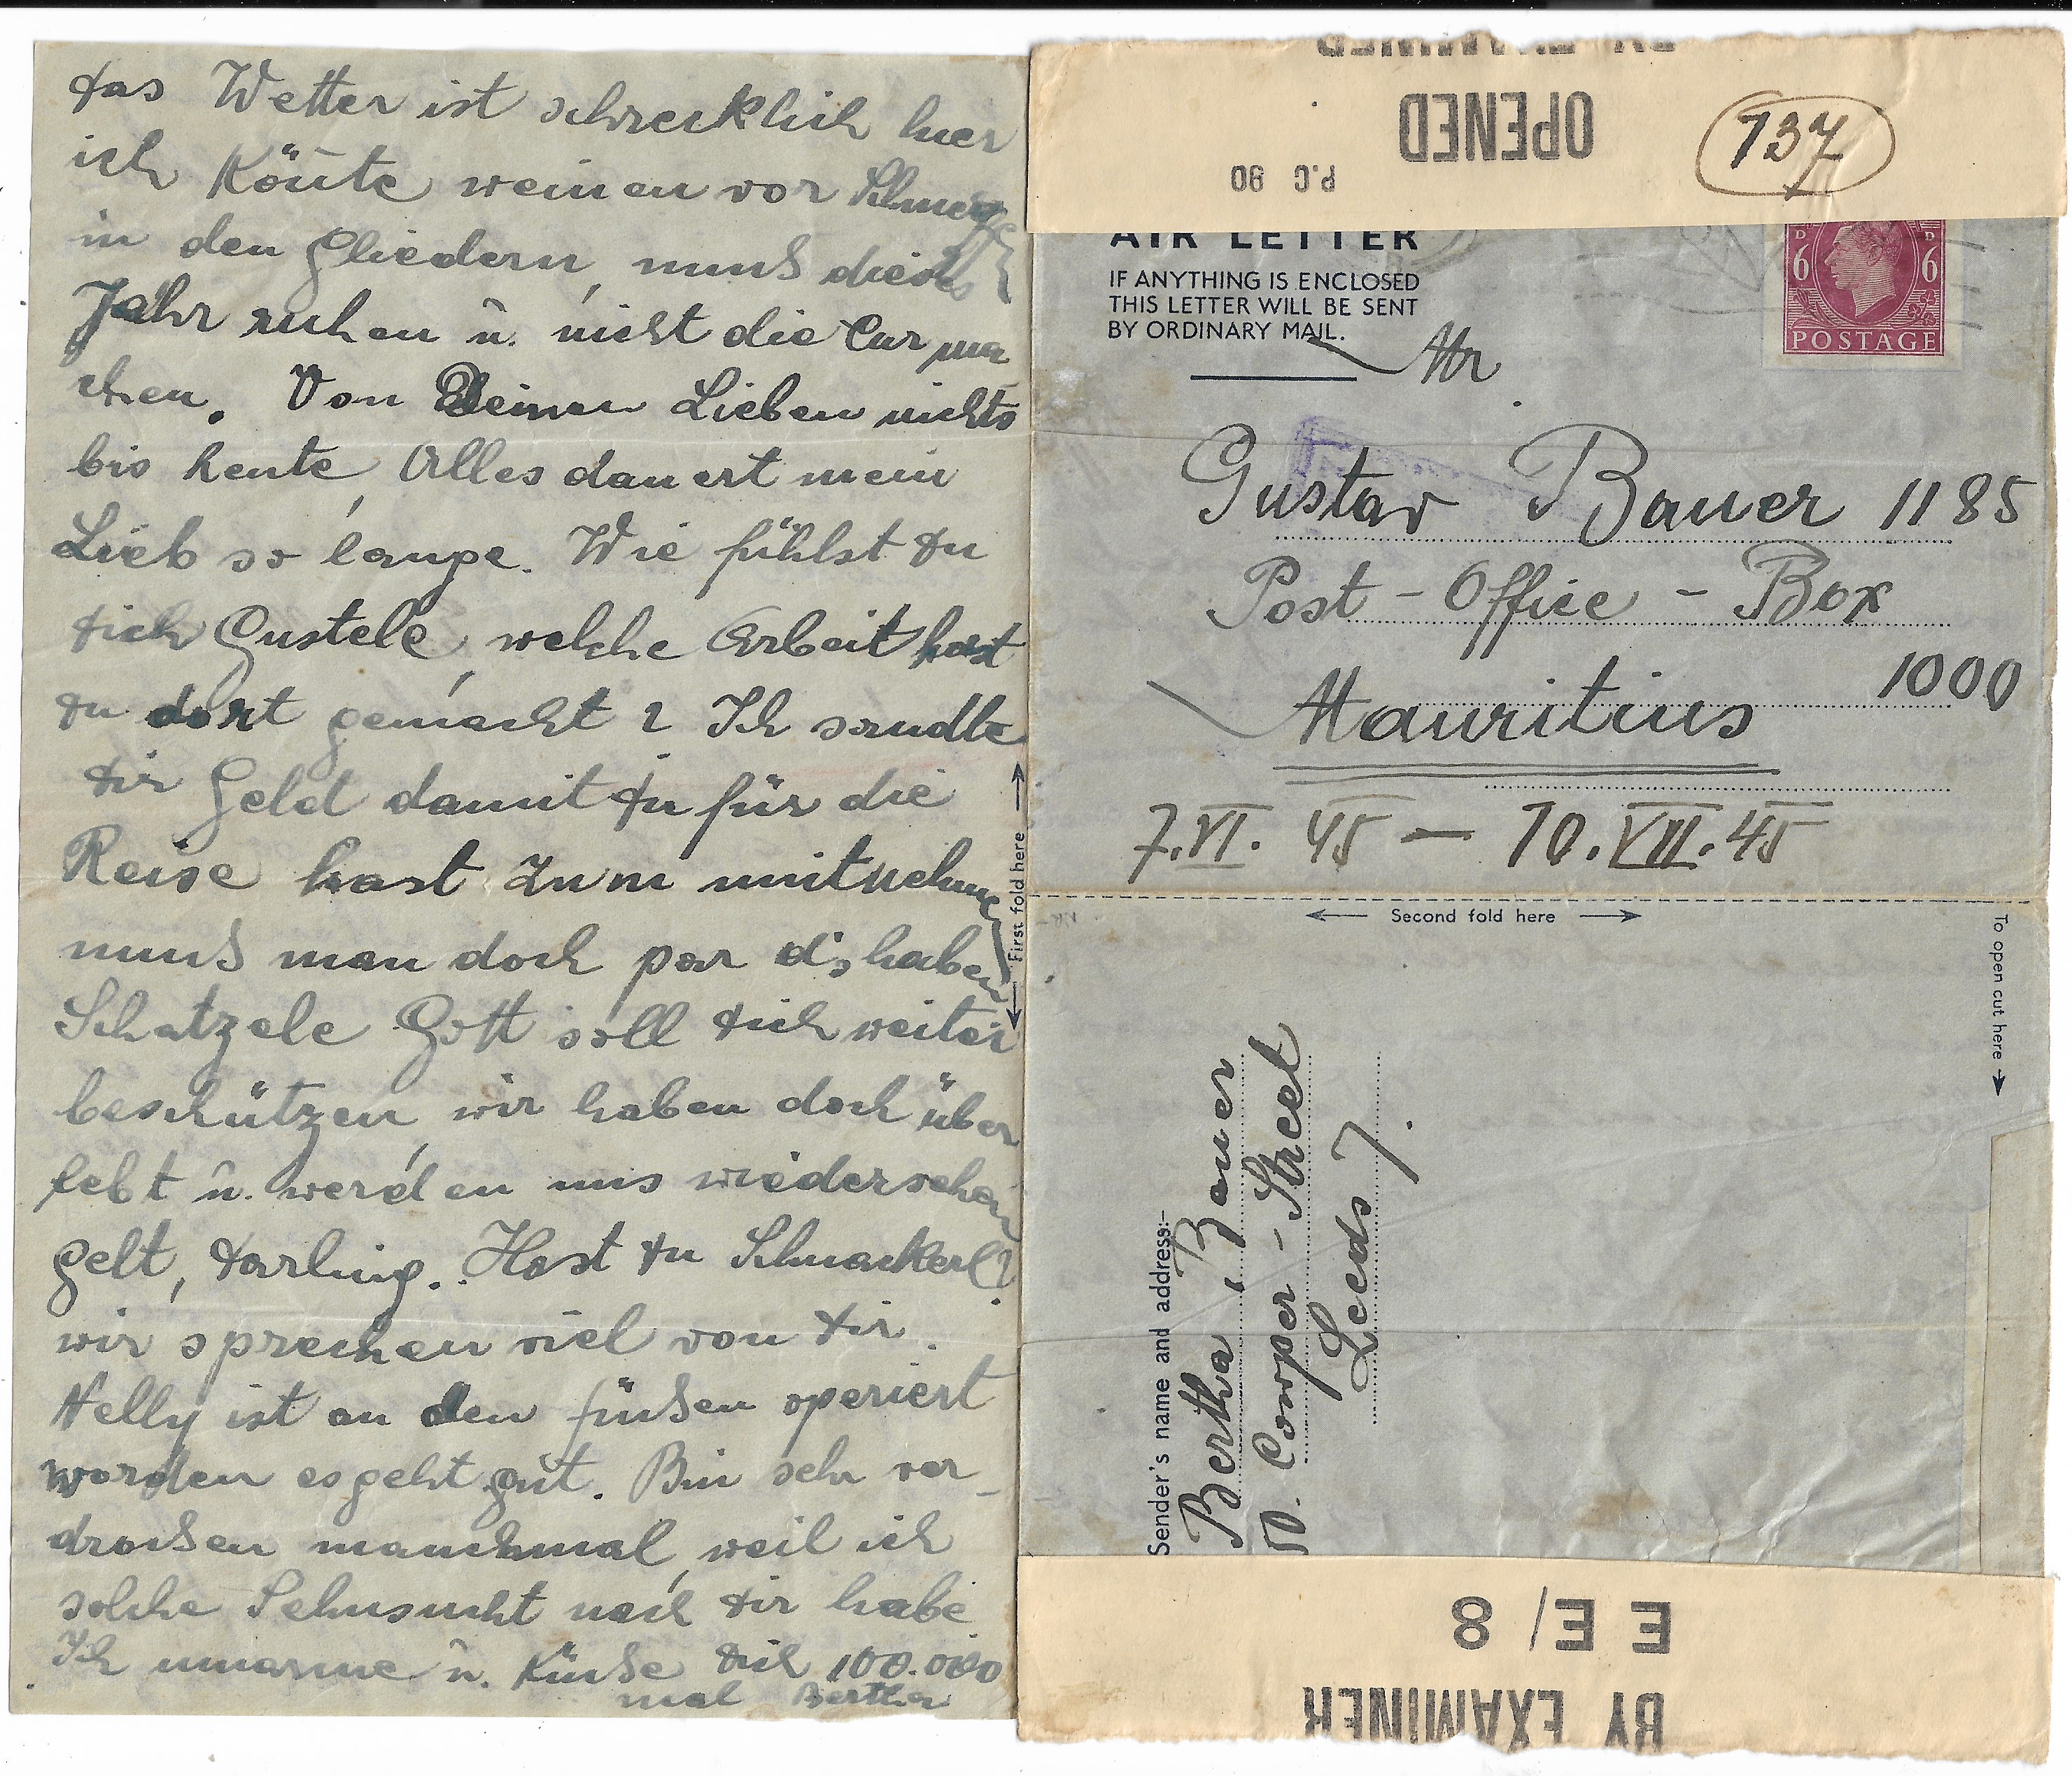 das Wetter ist schrecklich hier
ich könnte weinen vor Schmerze
in den Gliedern, muß dieses
Jahr ruhen u. nicht die Cur ma
chen. Von Deinen Lieben nichts
bis heute, Alles dauert mein
Lieb so lange. Wie fühlst du
dich Gustele, welche Arbeit hast
du dort gemacht? Ich sandte
dir Geld damit du für die
Reise hast zum mitnehmen
muß man doch par d, haben
Schatzele Gott soll dich weiter
beschützen, wir haben doch über
lebt u. werden uns wiedersehen
gelt, darling. Hast du Schnackerl?
wir sprechen viel von dir.
Nelly ist an den füßen operiert
worden es geht gut. Bin sehr ver-
droßen manchmal, weil ich
solche Sehnsucht nach dir habe
Ich umarme u. küße dich 100.000
mal Bertha
First fold here
BY EXAMINER
OPENED
P.C 90
737
AIR LETTER
IF ANYTHING IS ENCLOSED
THIS LETTER WILL BE SENT
BY ORDINARY MAIL.
6 D 6 D
POSTAGE
Mr
Gustav Bauer 1185
Post-Office-Box
1000
Mauritius
7.VI. 45 — 10.VII.45
Second fold here
To open cut here
Sender's name and address:-
Bertha Bauer
10. Cowper-Street
Leeds 7.
E E/8
BY EXAMINER